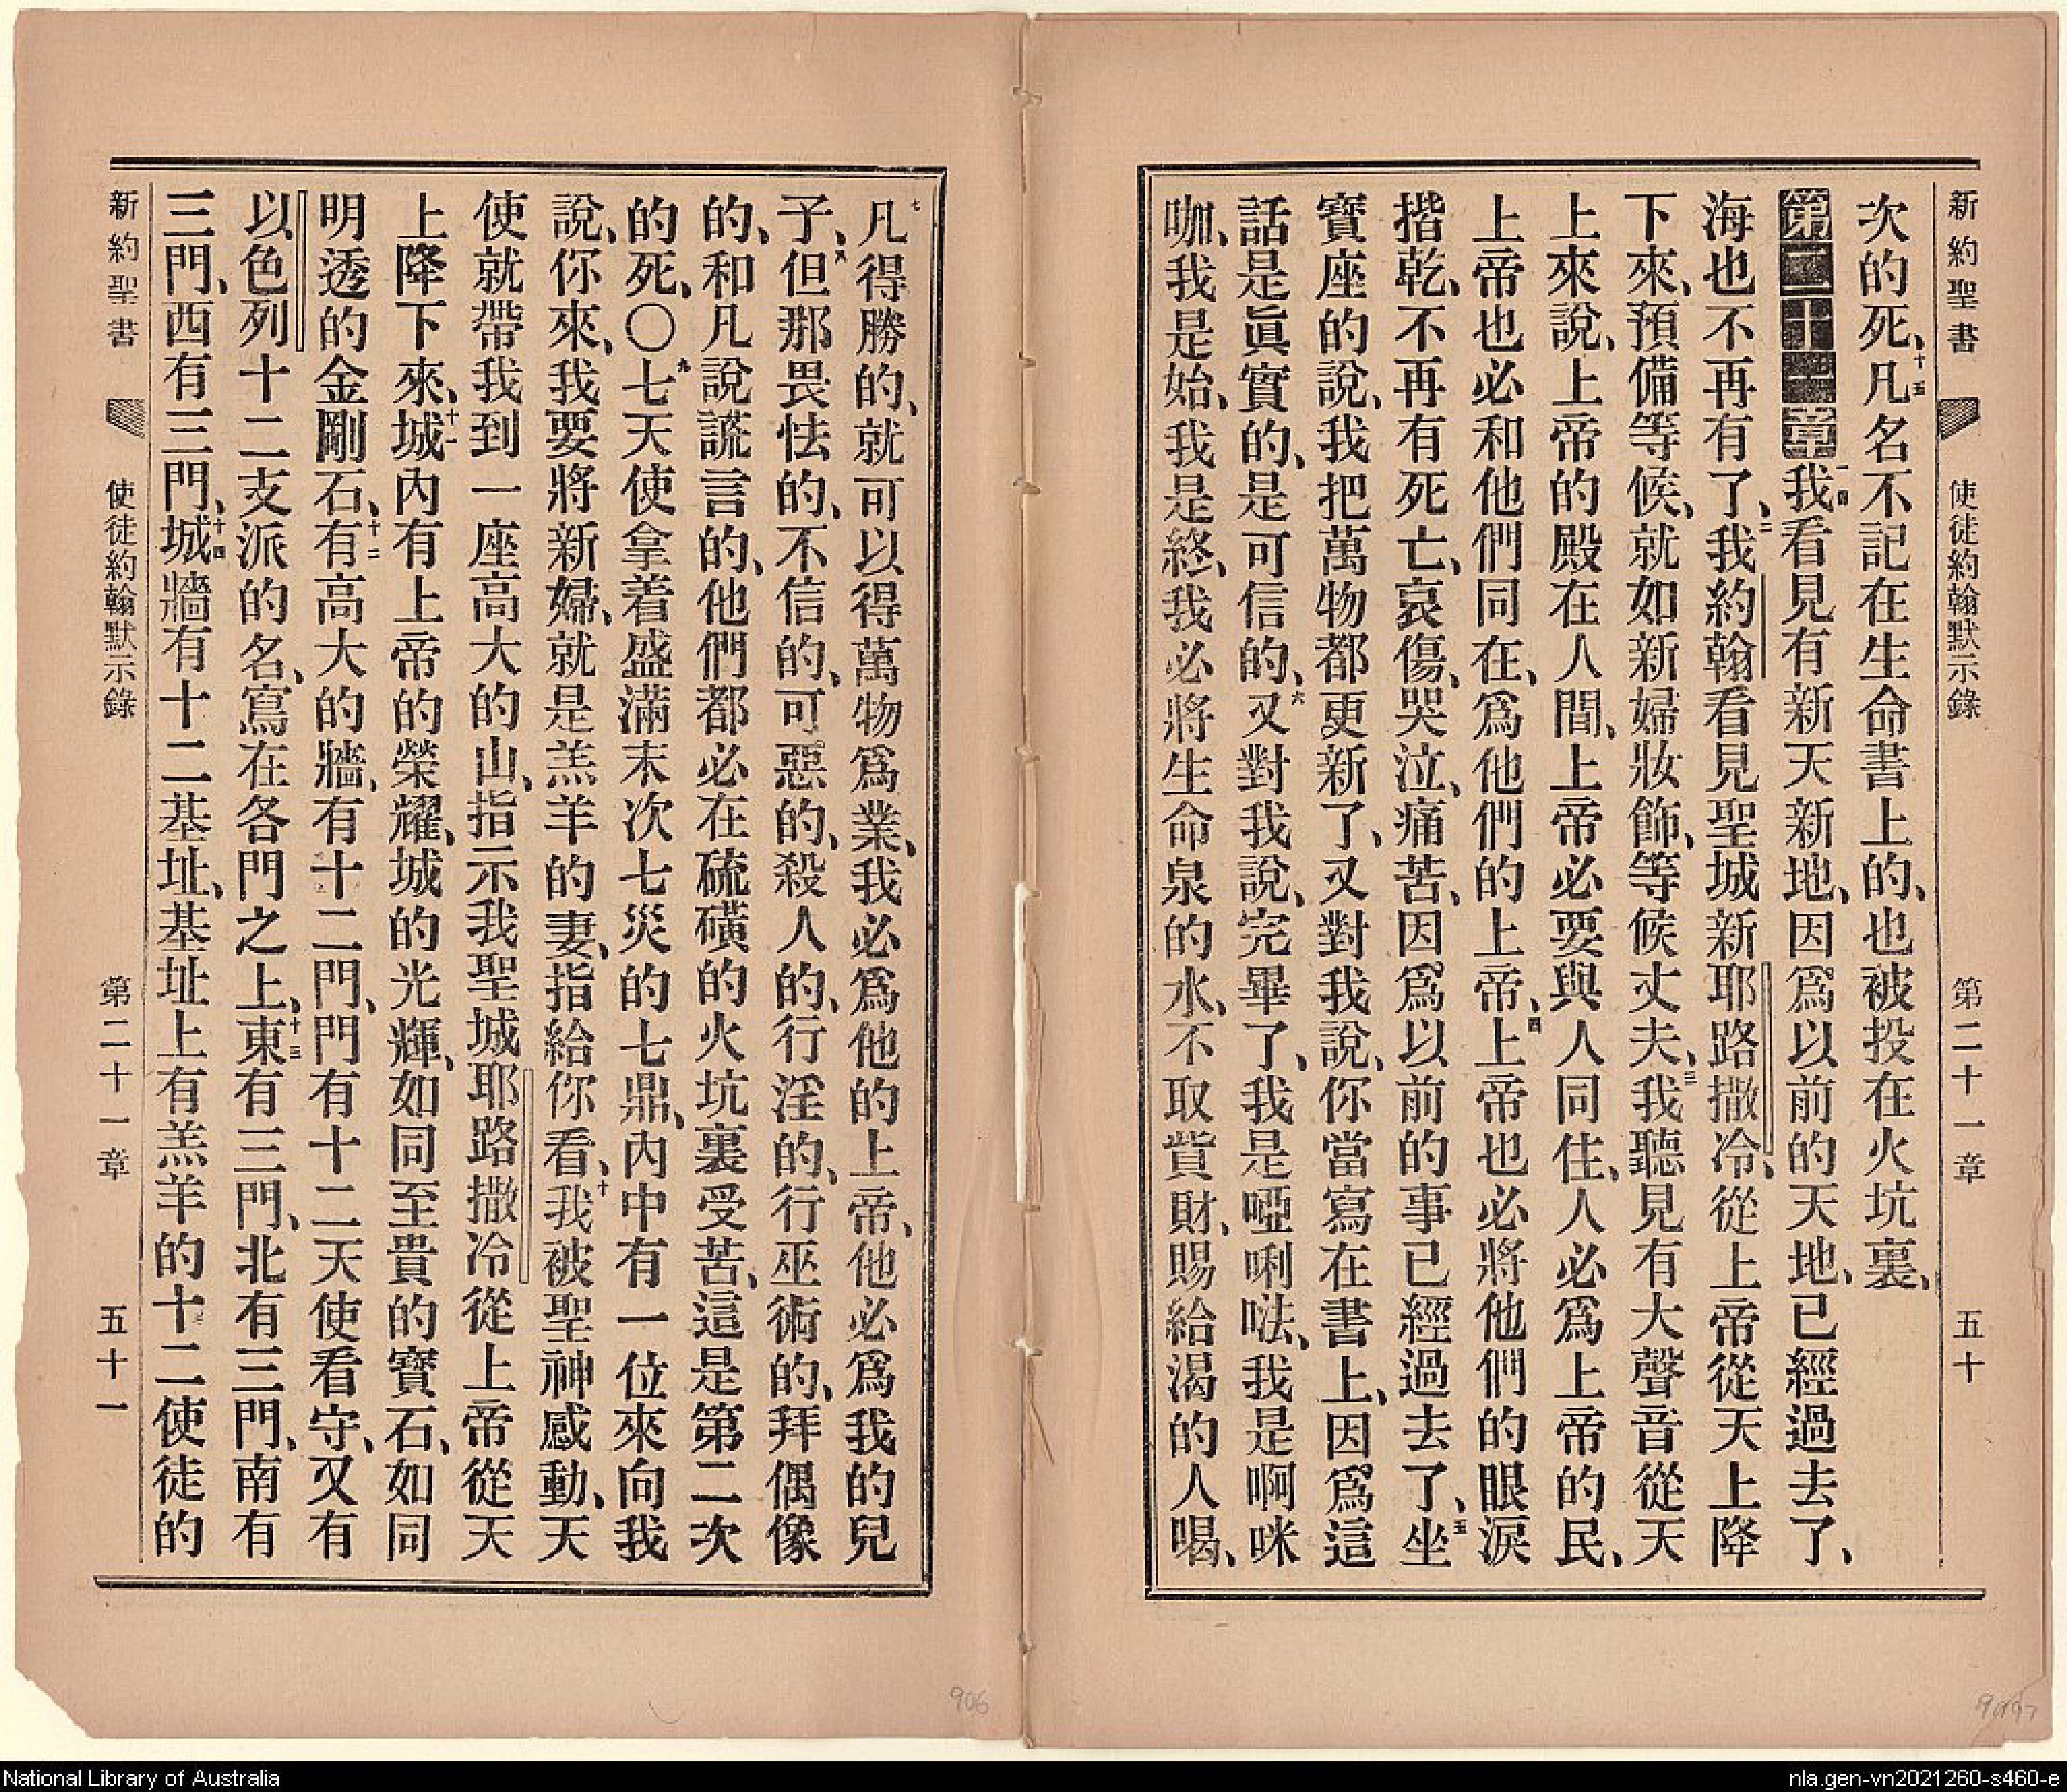 新約聖書 使徒約翰默示錄 第二十一章 五十
次的死、十五凡名不記在生命書上的、也被投在火坑裏、
第二十一章一我看見有新天新地、因爲以前的天地、已經過去了、
海也不再有了、二我約翰看見聖城新耶路撒冷、從上帝從天上降
下來、預備等候、就如新婦妝飾、等候丈夫、三我聽見有大聲音從天
上來說、上帝的殿在人間、上帝必要與人同住、人必爲上帝的民、
上帝也必和他們同在、爲他們的上帝、四上帝也必將他們的眼淚
揩乾、不再有死亡、哀傷、哭泣、痛苦、因爲以前的事已經過去了、五坐
寶座的說、我把萬物都更新了、又對我說、你當寫在書上、因爲這
話是眞實的、是可信的、六又對我說、完畢了、我是啞唎㕸、我是啊咪
咖、我是始、我是終、我必將生命泉的水、不取貲財、賜給渴的人喝、
七凡得勝的、就可以得萬物爲業、我必爲他的上帝、他必爲我的兒
子、八但那畏怯的、不信的、可惡的、殺人的、行淫的、行巫術的、拜偶像
的、和凡說謊言的、他們都必在硫磺的火坑裏受苦、這是第二次
的死、〇九七天使拿着盛滿末次七災的七鼎、內中有一位來向我
說、你來、我要將新婦、就是羔羊的妻、指給你看、十我被聖神感動、天
使就帶我到一座高大的山、指示我聖城耶路撒冷從上帝從天
上降下來、十一城內有上帝的榮耀、城的光輝、如同至貴的寶石、如同
明透的金剛石、十二有高大的牆、有十二門、門有十二天使看守、又有
以色列十二支派的名、寫在各門之上、十三東有三門、北有三門、南有
三門、西有三門、十四城牆有十二基址、基址上有羔羊的十二使徒的
新約聖書 使徒約翰默示錄 第二十一章 五十一
906
National Library of Australia
nla.gen-vn2021260-s460-e